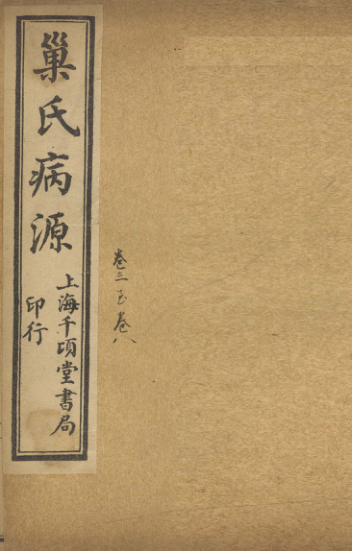 巢氏病源
上海千頃堂書局
印行
卷三至卷八